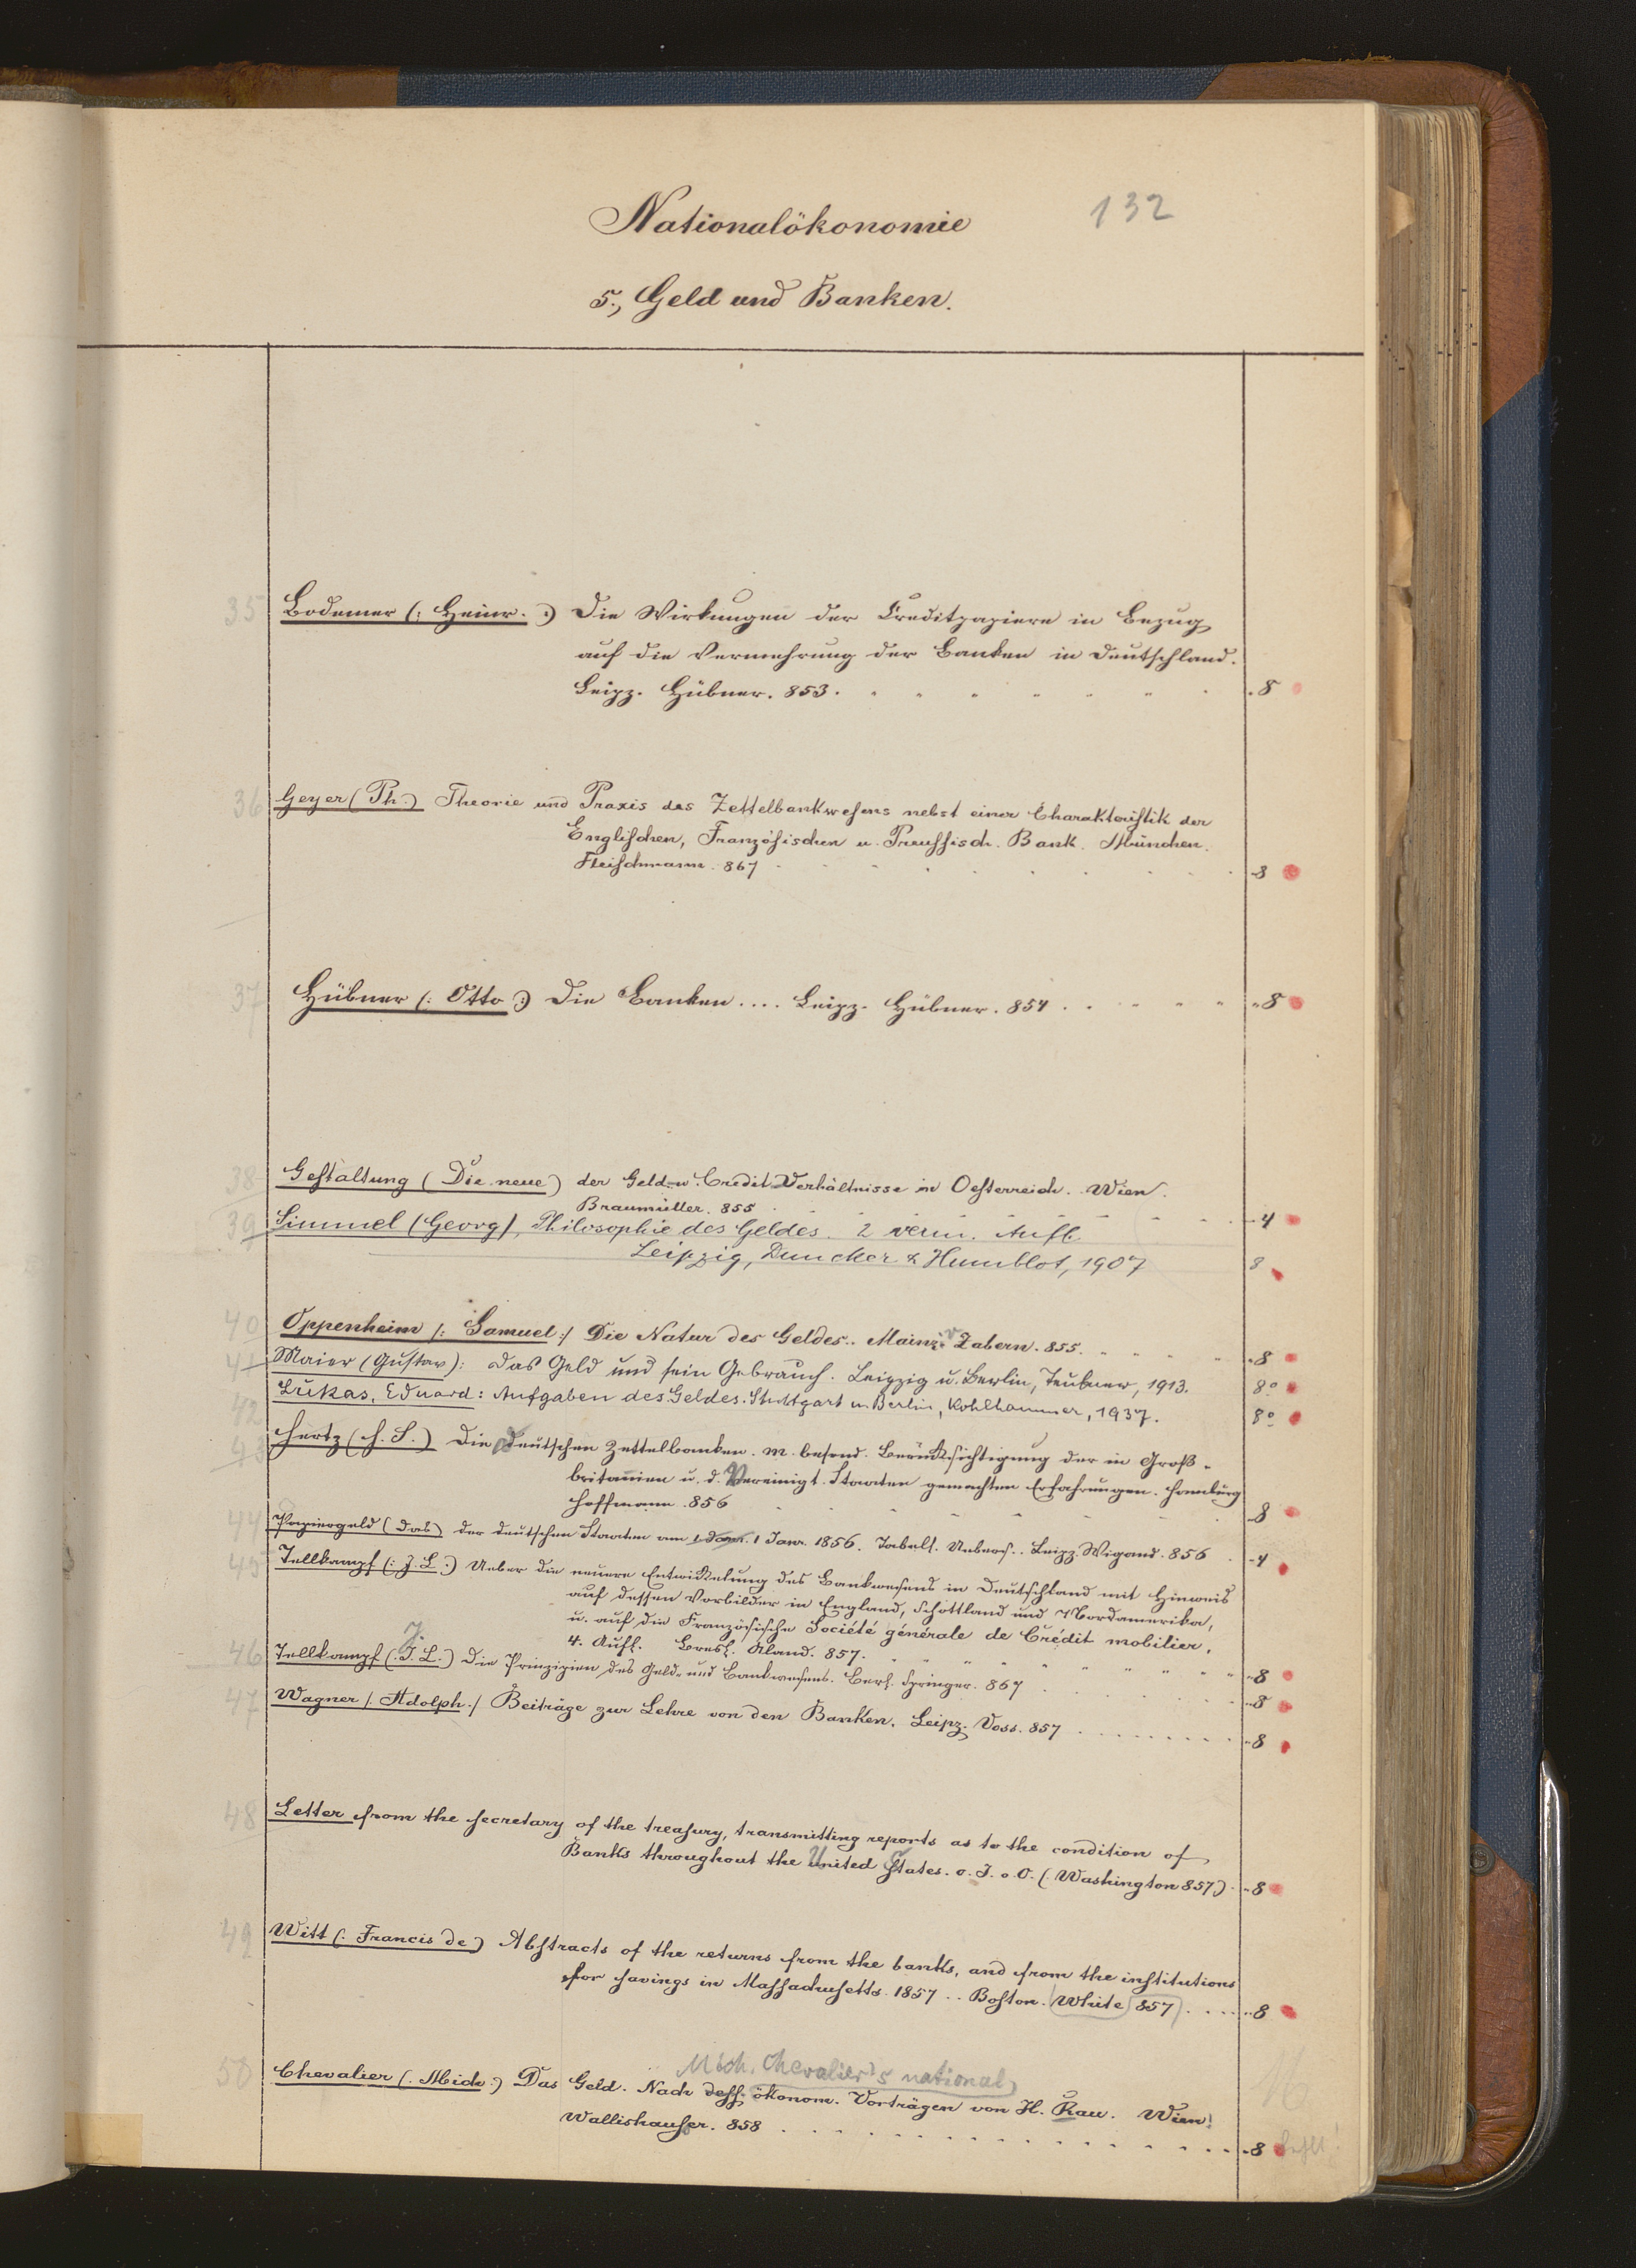 132
Nationalökonomie
5., Geld und Banken.
35 Bodemer (: Heinr. :) Die Wirkungen der Creditpapiere in Bezug
auf die Vermehrung der Banken in Deutschland.
Leipz. Hübner. 853. . . . . . . . 8
36 Geyer (Ph.) Theorie und Praxis des Zettelbankwesens nebst einer Charakteristik der
Englischen, Französischen u. Preussisch. Bank. München.
Fleischmann. 867 . . . . . . . . -8
37 Hübner (: Otto :) Die Banken .... Leipz. Hübner. 854 . . . . . . 8
38 Gestaltung (Die neue) der Geld- u. Credit Verhältnisse in Oesterreich. Wien.
Braumüller. 855 . . . . . . . . -4
39 Simmel (Georg), Philosophie des Geldes. 2 verm. Aufl.
Leipzig, Duncker & Humblot, 1907 8
40 Oppenheim /: Samuel :/ Die Natur des Geldes.. Mainz. v Zabern. 855. . . . . -8
41 Maier (Gustav): Das Geld und sein Gebrauch. Leipzig u. Berlin, Teubner, 1913. 8°
42 Lukas, Eduard: Aufgaben des Geldes. Stuttgart u. Berlin, Kohlhammer, 1937. 8°
43 Hertz (H. S.) Die deutschen Zettelbanken. m. besond. Berücksichtigung der in Groß-
britanien u. d. Vereinigt. Staaten gemachten Erfahrungen. Hamburg
Hoffmann. 856 . . . . . . . -8
44 Papiergeld (Das) der deutschen Staaten am 1 Janr. 1 Janr. 1856. Tabell. Uebers.. Leipz. Wigand. 856 . -4
45 Tellkampf (: J. L :) Ueber die neuere Entwickelung des Bankwesens in Deutschland mit Hinweis
auf dessen Vorbilder in England, Schottland und Nordamerika,
u. auf die Französische Société générale de Crédit mobilier.
4. Aufl. Bresl. Aland. 857. . . . . . . . . -8
46 Tellkampf (: J. L. :) Die Prinzipien des Geld- und Bankwesens. Berl. Springer. 867 . . . . . -8
47 Wagner /. Adolph./ Beiträge zur Lehre von den Banken. Leipz. Voss. 857 . . . . . . . . -8
48 Letter from the secretary of the treasury, transmitting reports as to the condition of
Banks throughout the United States. o. J. o. O. (Washington 857.) . -8
49 Witt (: Francis de :) Abstracts of the returns from the banks, and from the institutions
for savings in Massachusetts. 1857 .. Boston. (White) 857 . . . . . 8
Mich. Chevalier's national
50 Chevalier (. Mich :) Das Geld. Nach dess. ökonom. Vorträgen von H. Rau. Wien.
Wallishauser. 858 . . . . . . . . . -8 fehlt!